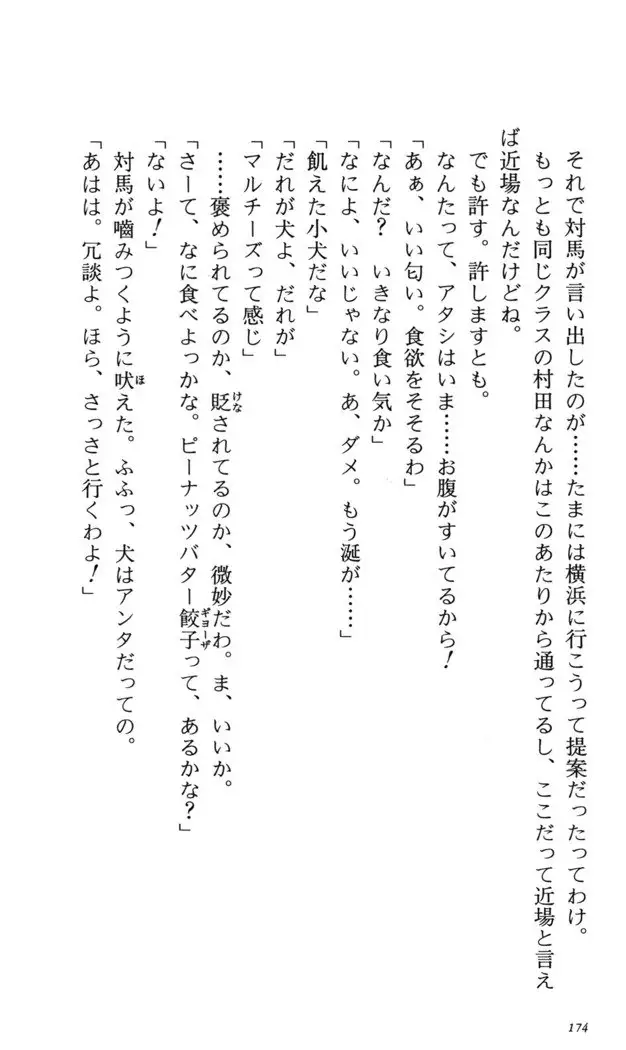 それで対馬が言い出したのが……たまには横浜に行こうって提案だったってわけ。
もっとも同じクラスの村田なんかはこのあたりから通ってるし、ここだって近場と言え
ば近場なんだけどね。
でも許す。許しますとも。
なんたって、アタシはいま……お腹がすいてるから！
「あぁ、いい匂い。食欲をそそるわ」
「なんだ？　いきなり食い気か」
「なによ、いいじゃない。あ、ダメ。もう涎が……」
「飢えた小犬だな」
「だれが犬よ、だれが」
「マルチーズって感じ」
……褒められてるのか、貶されてるのか、微妙だわ。ま、いいか。
「さーて、なに食べよっかな。ピーナッツバター餃子って、あるかな？」
「ないよ！」
対馬が嚙みつくように吠えた。ふふっ、犬はアンタだっての。
「あはは。冗談よ。ほら、さっさと行くわよ！」
174